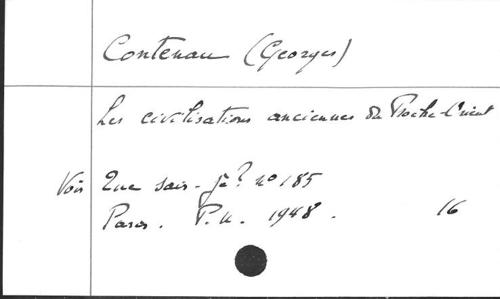 Contenau (Georges)
Les civilisations anciennes du Proche-Orient
Voir Que sais-je? nº 185
Paris. P.U. 1948. 16